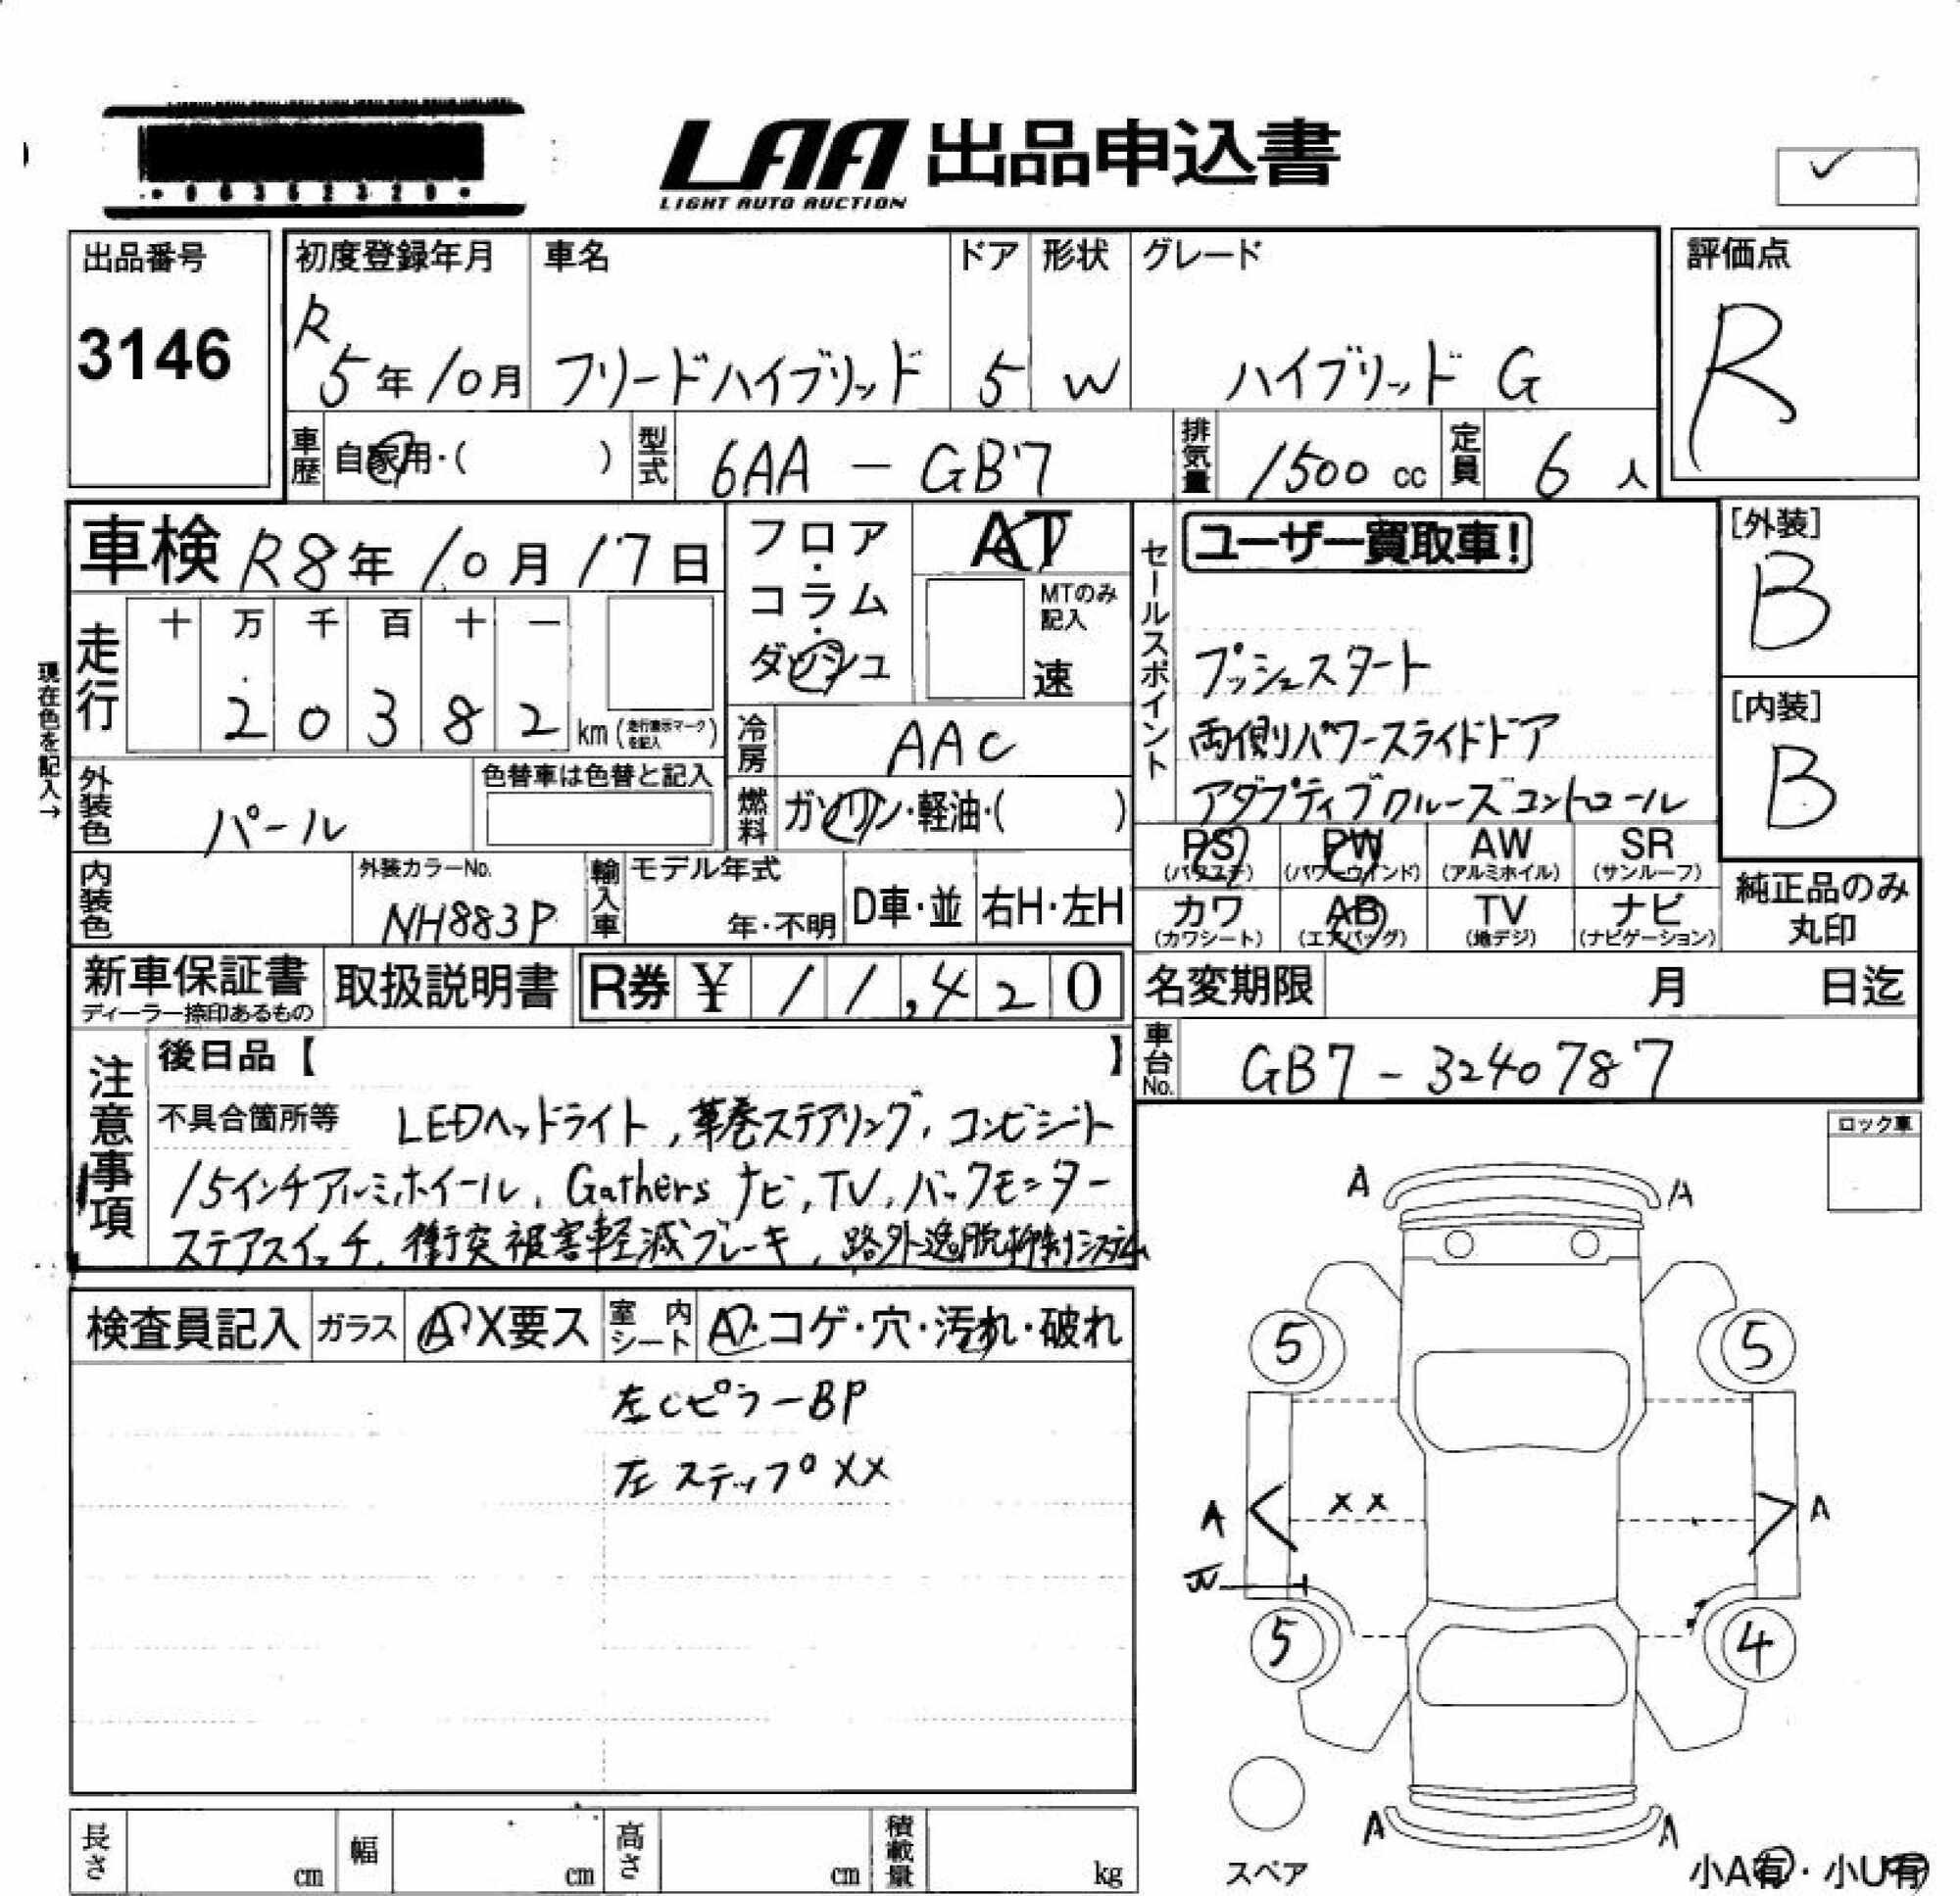 LAA 出品申込書
LIGHT AUTO AUCTION
✓
出品番号
3146
初度登録年月
R
5年10月
車名
フリードハイブリッド
ドア
5
形状
W
グレード
ハイブリッド G
評価点
R
車歴
自家用・( )
型式
6AA - GB7
排気量
1500 cc
定員
6 人
車検 R8年 10月 17日
フロア・コラム・ダッシュ
AT
MTのみ記入
速
セールスポイント
ユーザー買取車!
プッシュスタート
両側パワースライドドア
アダプティブクルーズコントロール
[外装]
B
[内装]
B
現在色を記入→
走行
十 万 千 百 十 一
2 0 3 8 2 km (走行表示マークを記入)
冷房
AAC
外装色
パール
色替車は色替と記入
燃料
ガソリン・軽油・( )
PS (パワステ)
PW (パワーウインド)
AW (アルミホイル)
SR (サンルーフ)
カワ (カワシート)
AB (エアバッグ)
TV (地デジ)
ナビ (ナビゲーション)
純正品のみ
丸印
内装色
外装カラーNo.
NH883P
輸入車
モデル年式
年・不明
D車・並
右H・左H
新車保証書
ディーラー捺印あるもの
取扱説明書
R券 ¥ 11,420
名変期限 月 日迄
車台No.
GB7 - 3240787
注意事項
後日品【 】
不具合箇所等 LEDヘッドライト, 革巻ステアリング, コンビシート
15インチアルミホイール, Gathers ナビ, TV, バックモニター
ステアスイッチ, 衝突被害軽減ブレーキ, 路外逸脱抑制システム
ロック車
検査員記入
ガラス
A・X要ス
室内シート
A・コゲ・穴・汚れ・破れ
左CピラーBP
左ステップXX
A A
5 5
A XX A
5 4
A A
スペア
小A有・小U有
長さ cm
幅 cm
高さ cm
積載量 kg